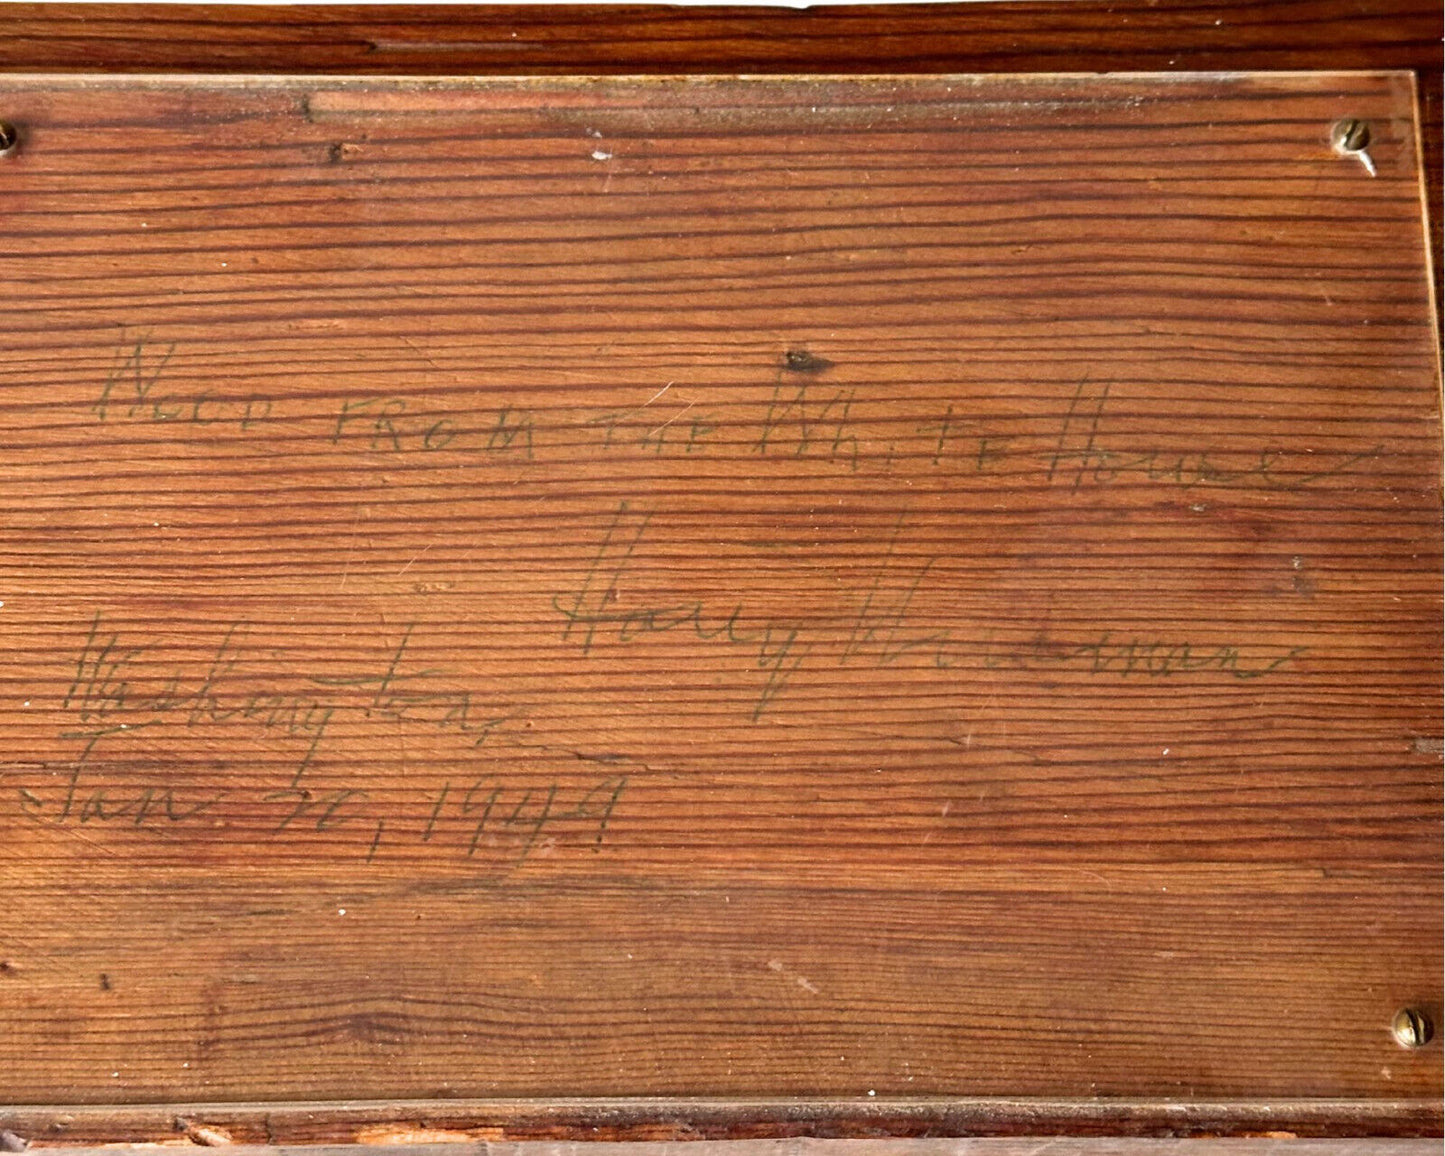 WOOD FROM THE WhiTE House
Harry
Washington,
Jan 20, 1949